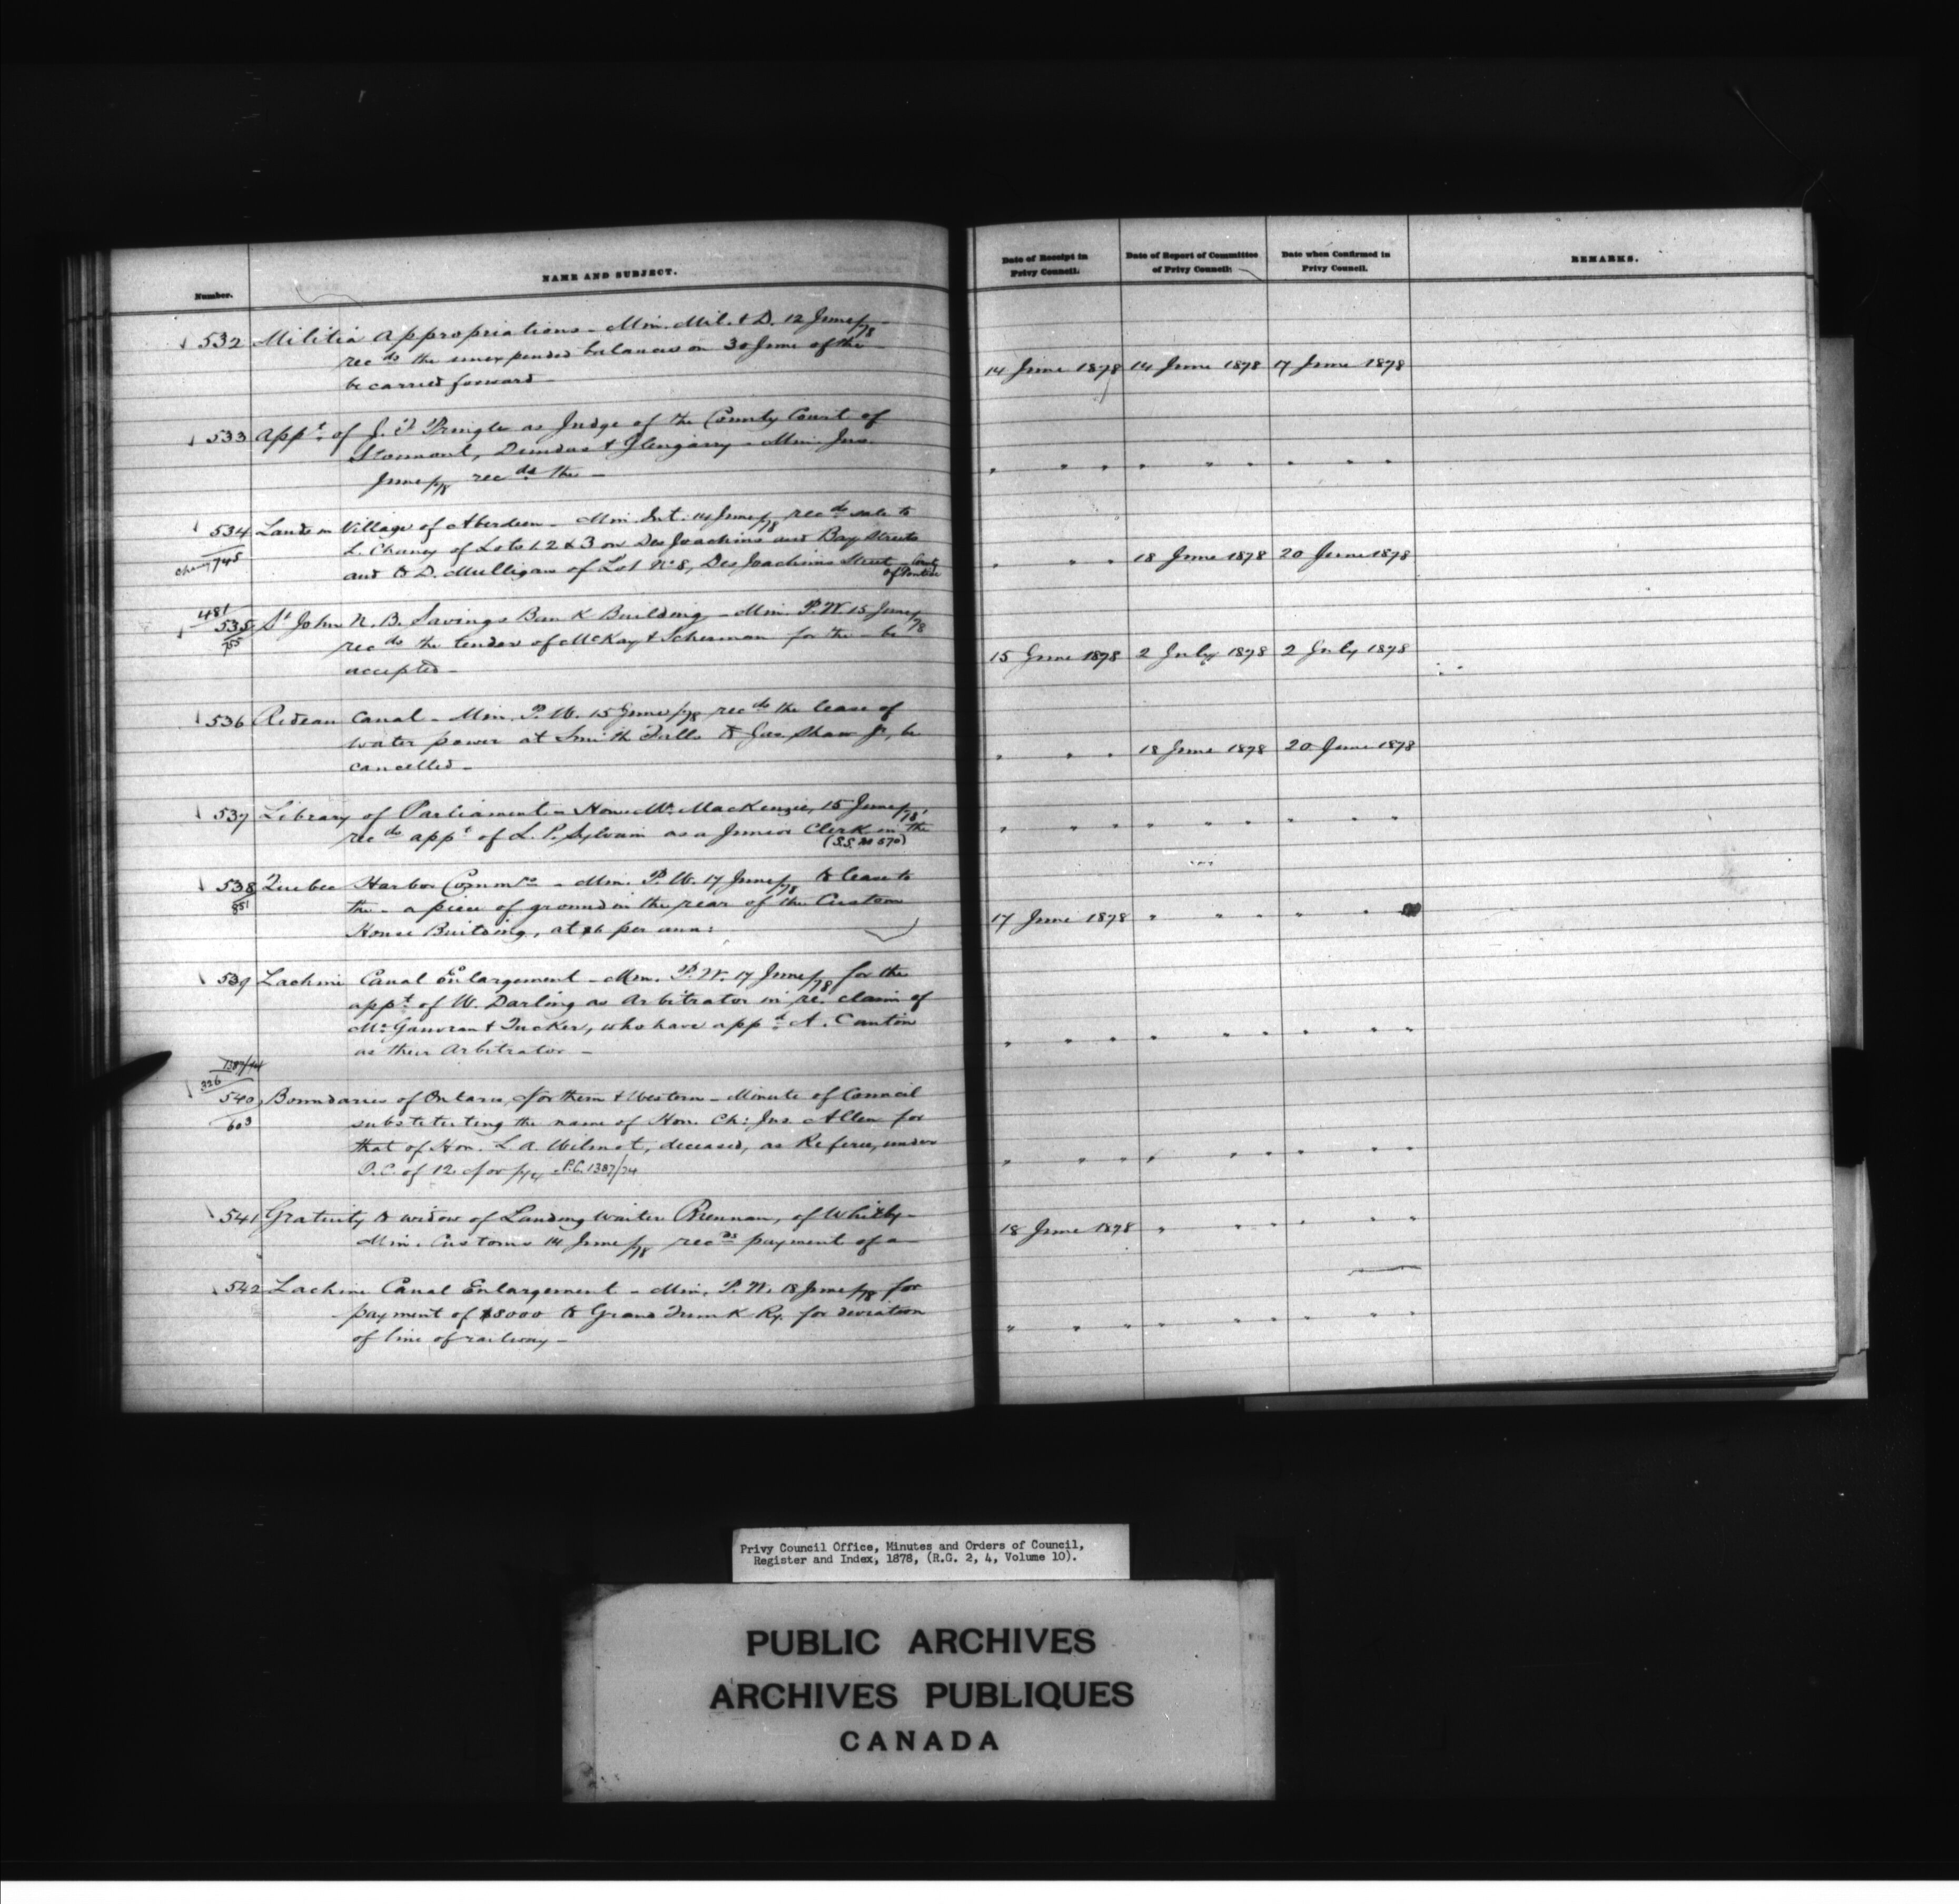 Number.
NAME AND SUBJECT.
Date of Receipt in Privy Council.
Date of Report of Committee of Privy Council.
Date when Confirmed in Privy Council.
REMARKS.
532 Militia Appropriations - Min. Mil. & D. 12 June/78
recds the unexpended balances on 30 June of the -
be carried forward -
14 June 1878 14 June 1878 17 June 1878
533 Appt. of J. F. Pringle as Judge of the County Court of
Stormont, Dundas & Glengarry - Min. Jus.
June/78 recds the -
" " " " " " " " "
534 Lands in Village of Aberdeen - Min. Int. 14 June/78 recds sale to
745
L. Chaney of Lots 1. 2 & 3 on Des Joachims and Bay Streets
and to D. Mulligan of Lot No 8, Des Joachims Street - County
of Pontiac
" " " 18 June 1878 20 June 1878
481
535 St John N. B. Savings Bank Building - Min. P. W. 15 June/78
755
recds the tender of McKay & Scherman for the - be
accepted -
15 June 1878 2 July 1878 2 July 1878
536 Rideau Canal - Min. P. W. 15 June/78 recds the lease of
water power at Smith Falls to Jas Shaw Jr, be
cancelled -
" " " 18 June 1878 20 June 1878
537 Library of Parliament - Hon. Mr. MacKenzie, 15 June/78
recds appt of L. P. Sylvain as a Junior Clerk in the
(S.S. no 570)
" " " " " " " " "
538 Quebec Harbor Commrs - Min. P. W. 17 June/78 to lease to
851
the - a piece of ground in the rear of the Custom
House Building, at $6 per ann:
17 June 1878 " " " " " "
539 Lachine Canal Enlargement - Min. P. W. 17 June/78 for the
appt. of W. Darling as Arbitrator in re. claim of
& Tucker, who have appd A. Cantin
as their Arbitrator -
" " " " " " " " "
1387/74
326
540 Boundaries of Ontario, Northern & Western - Minute of Council
603
substituting the name of Hon. Ch: Jus. Allen for
that of Hon. L. A. Wilmot, deceased, as Referee, under
O.C. of 12 Nov/74 - P.C. 1387/74
" " " " " " " " "
541 Gratuity to widow of Landing Waiter Brennan, of Whitby -
Min. Customs 14 June/78 recds payment of a -
18 June 1878 " " " " " "
542 Lachine Canal Enlargement - Min. P. W. 18 June/78 for
payment of $8000 to Grand Trunk Ry. for deviation
of line of railway -
" " " " " " " " "
Privy Council Office, Minutes and Orders of Council,
Register and Index, 1878, (R.G. 2, 4, Volume 10).
PUBLIC ARCHIVES
ARCHIVES PUBLIQUES
CANADA